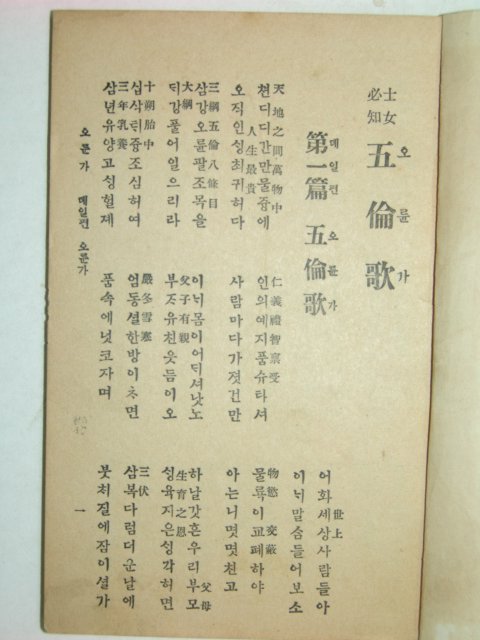 士女必知
五倫歌
오륜가
第一篇 五倫歌
뎨일편 오륜가
世上
어화세상사람들아
이ᄂᆡ말슴들어보소
天地之間萬物中
텬디디간만물즁에
仁義禮智稟受
인의예지품슈타셔
物慾 交蔽
물륙이교폐하야
人生最貴
오직인ᄉᆡᆼ최귀허다
사람마다가졋건만
아는니몃몃친고
三綱五倫八條目
삼강오륜팔조목을
이ᄂᆡ몸이어ᄃᆡ셔낫노
父母
하날갓흔우리부모
大綱
ᄃᆡ강풀어일으리라
父子有親
부ᄌᆞ유친웃듬이오
生育之恩
ᄉᆡᆼ육지은ᄉᆡᆼ각허면
十朔胎中
십삭ᄐᆡ즁조심허여
嚴冬雪寒
엄동셜한방이ᄎᆞ면
三伏
삼복다럼더운날에
三年乳養
삼년유양고ᄉᆡᆼ헐졔
품속에넛코자며
붓처질에잠이셜가
오륜가 뎨일편 오륜가
一